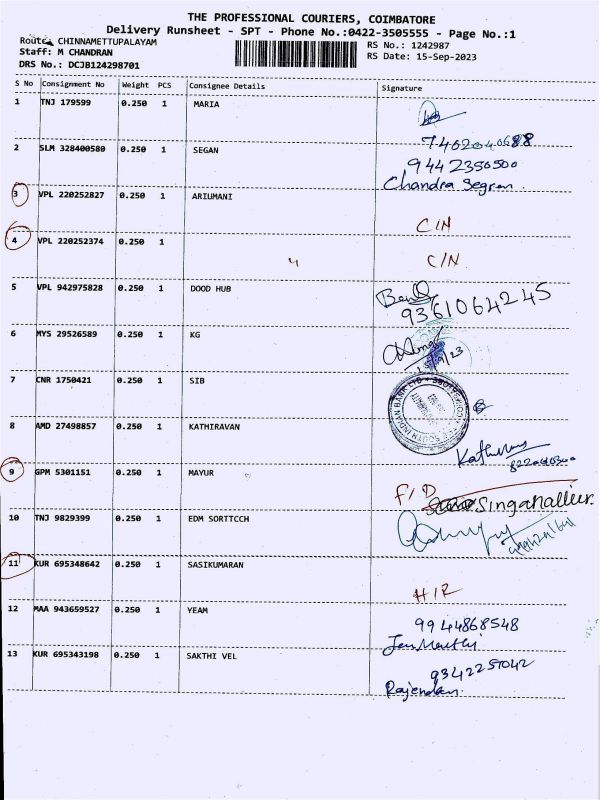 THE PROFESSIONAL COURIERS, COIMBATORE
Delivery Runsheet - SPT - Phone No.:0422-3505555 - Page No.:1
Route: CHINNAMETTUPALAYAM
RS No.: 1242987
Staff: M CHANDRAN
RS Date: 15-Sep-2023
DRS No.: DCJB124298701
S No Consignment No Weight PCS Consignee Details Signature
1 TNJ 179599 0.250 1 MARIA
7402040688
2 SLM 328400580 0.250 1 SEGAN
9442350500
Chandra Segran
3 VPL 220252827 0.250 1 ARIUMANI
C/N
4 VPL 220252374 0.250 1
C/N
5 VPL 942975828 0.250 1 DOOD HUB
9361064245
6 MYS 29526589 0.250 1 KG
15/9/23
7 CNR 1750421 0.250 1 SIB
SOUTH INDIAN BANK LTD
8 AMD 27498857 0.250 1 KATHIRAVAN
9 GPM 5301151 0.250 1 MAYUR
F/D
Singanallur
10 TNJ 9829399 0.250 1 EDM SORTTCCH
11 KUR 695348642 0.250 1 SASIKUMARAN
H/R
12 MAA 943659527 0.250 1 YEAM
9944868548
13 KUR 695343198 0.250 1 SAKTHI VEL
9342257042
Rajendan